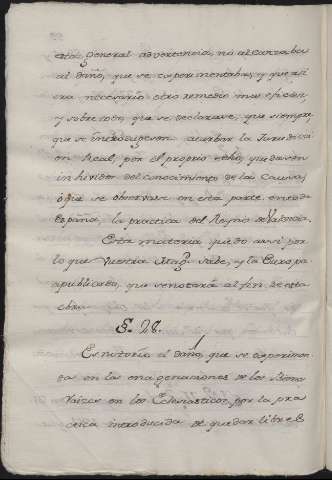 esta general advertencia, no alcanzaba
al daño, que se experimentaba, y que así
era necesario otro remedio mas eficaz,
y sobre todo, que se declarase, que siempre
que se introdugesen a turbar la Jurisdicci
on Real, por el proprio echo, quedasen
inhividos del conocimiento de la Causa,
o que se observase en esta parte en toda
España, la practica del Reyno de Valencia.
Esta materia quedo assi por
lo que Vuestra Mag.d sabe, y la Europa
a publicado, que se notará al fin de esta
obra.
§. 28.
Es notorio el daño, que se experimen
ta en las enagenaciones de los Bienes
Raizes en los Eclesiasticos, por la pra
ctica introducida de quedar libres